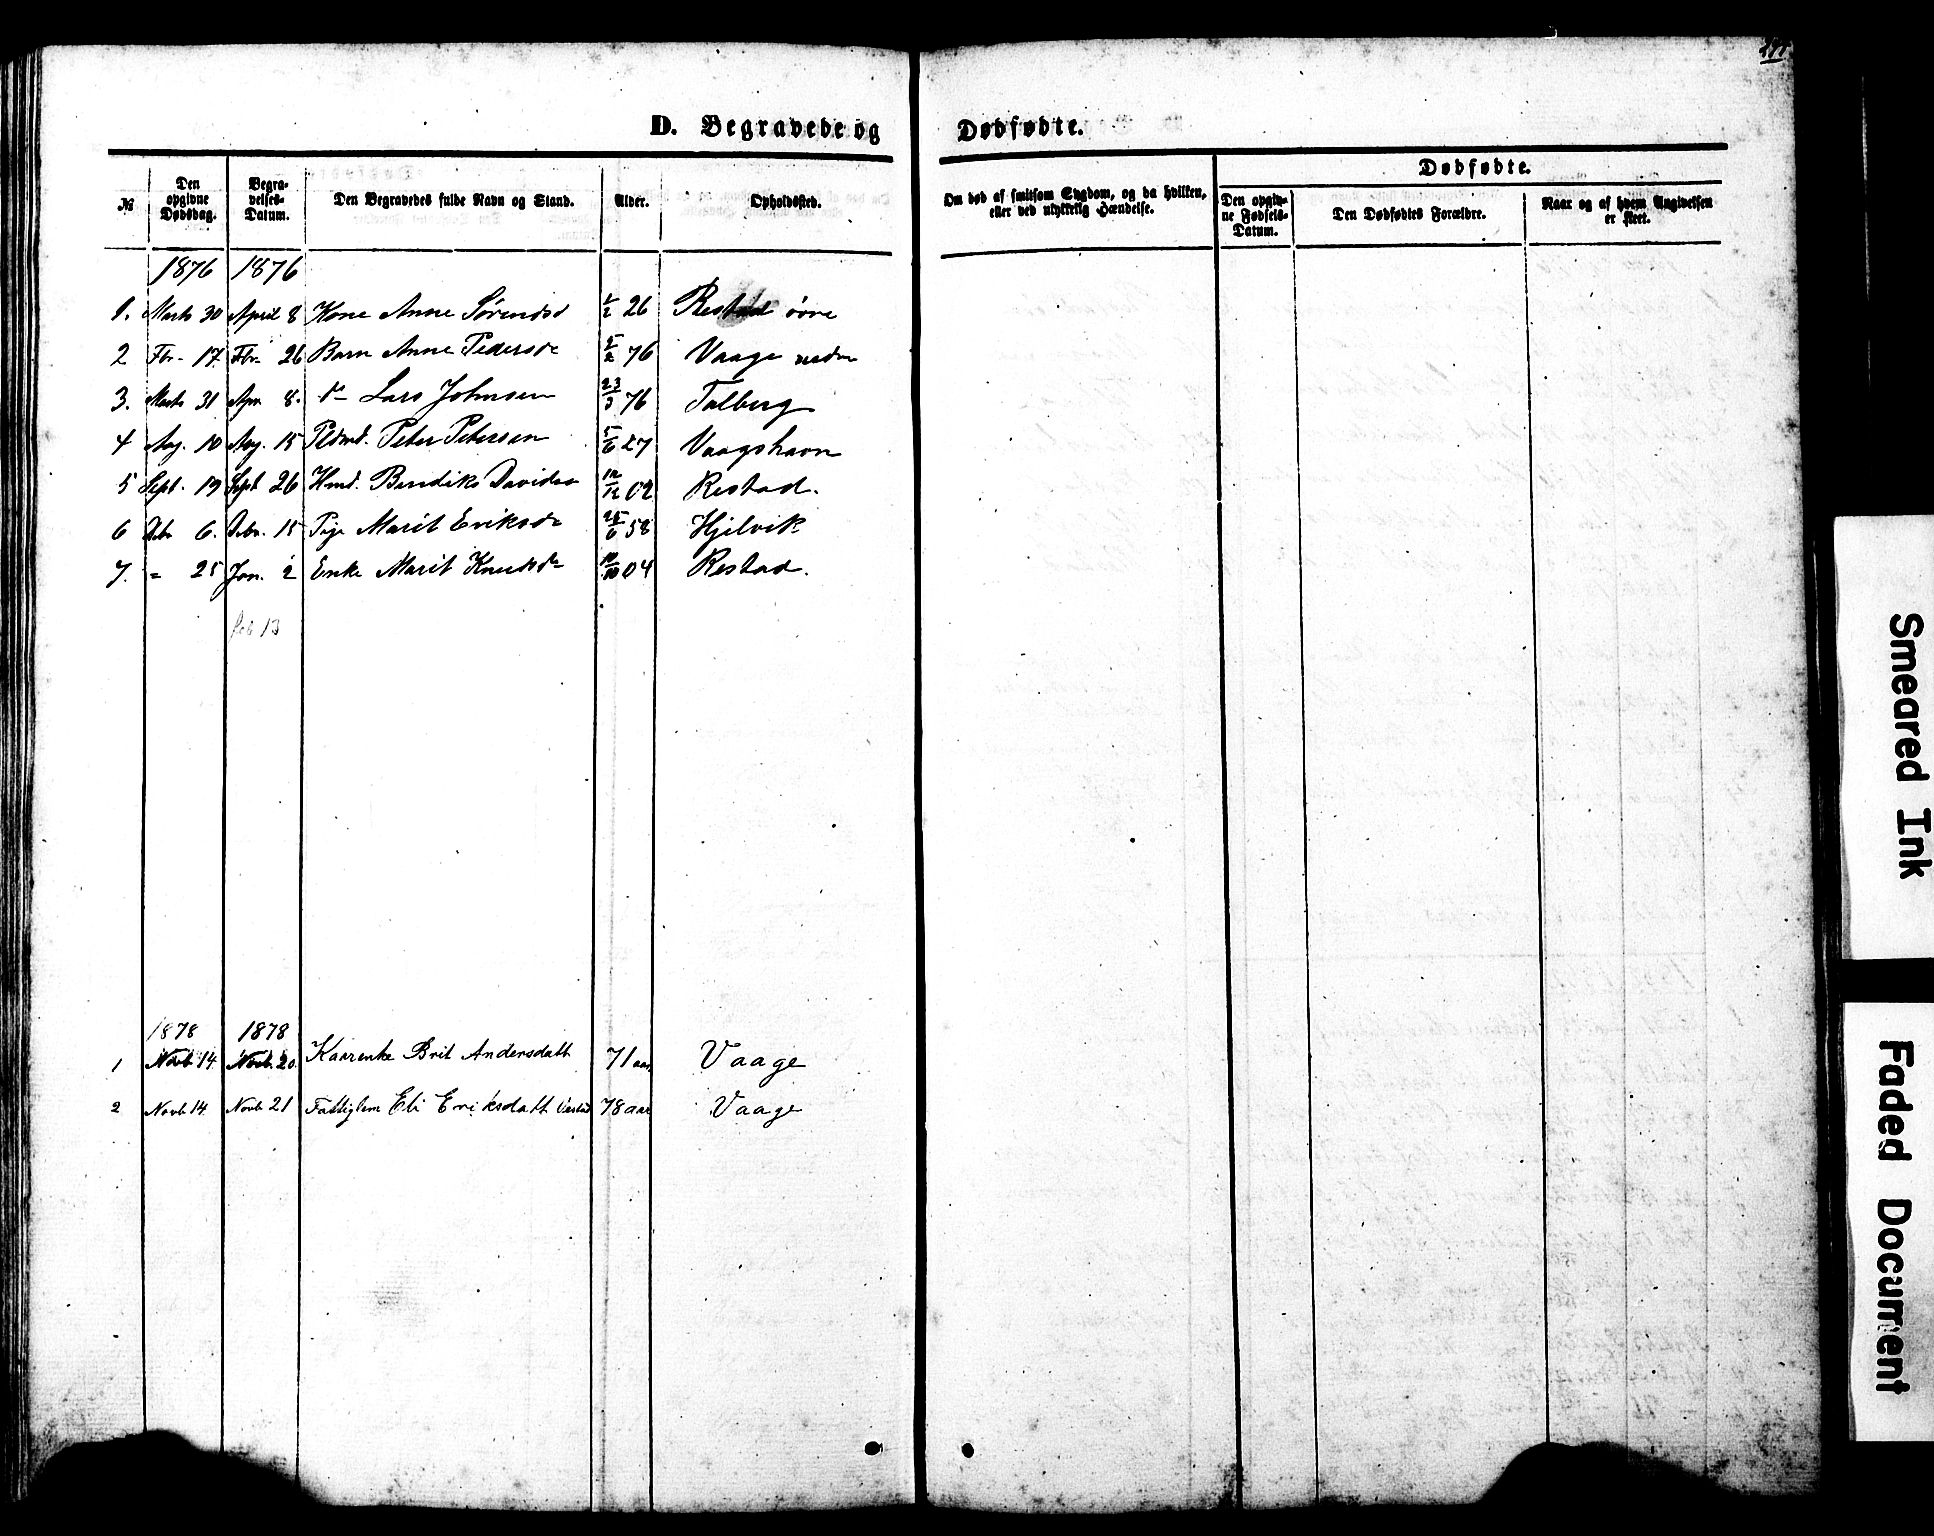 D. Begravede og Dødfødte.
№
Den opgivne Dødsdag.
Begravelses-Datum.
Den Begravedes fulde Navn og Stand.
Alder.
Opholdssted.
Om død af smitsom Sygdom, og da hvilken, eller ved ulykkelig Hændelse.
Dødfødte.
Den opgivne Fødsels-Datum.
Den Dødfødtes Forældre.
Naar og af hvem Angivelsen er skeet.
1876 1876
1. Marts 30 April 8 Kone Anne Sørensd 26 Restad övre
2 Fbr. 17. Fbr. 26 Barn Anne Pedersdr 5/2 76 Vaage nedre
3. Marts 31 Apr. 8. d— Lars Johnsen 23/3 76 Talberg
4 Aug. 10 Aug. 15 Peter Petersen 5/6 27 Vaagshavn
5 Sept. 19 Sept 26 Hmd. Bendiks Davidsen 12/12 02 Restad.
6 Debr 6. Debr. 15 Pige Marit Eriksdr 25/6 58 Hjelvik
7. " 25 Jan. 2 Enke Marit Knudsdr 10/10 04 Restad.
Feb 13
1878 1878
1 Novb 14. Novb. 20. Kaarenke Brit Andersdatt 71 aar Vaage
2 Novb 14 Novb 21 Fattiglem Eli Eriksdatt 78 aar Vaage
Smeared Ink
Faded Document